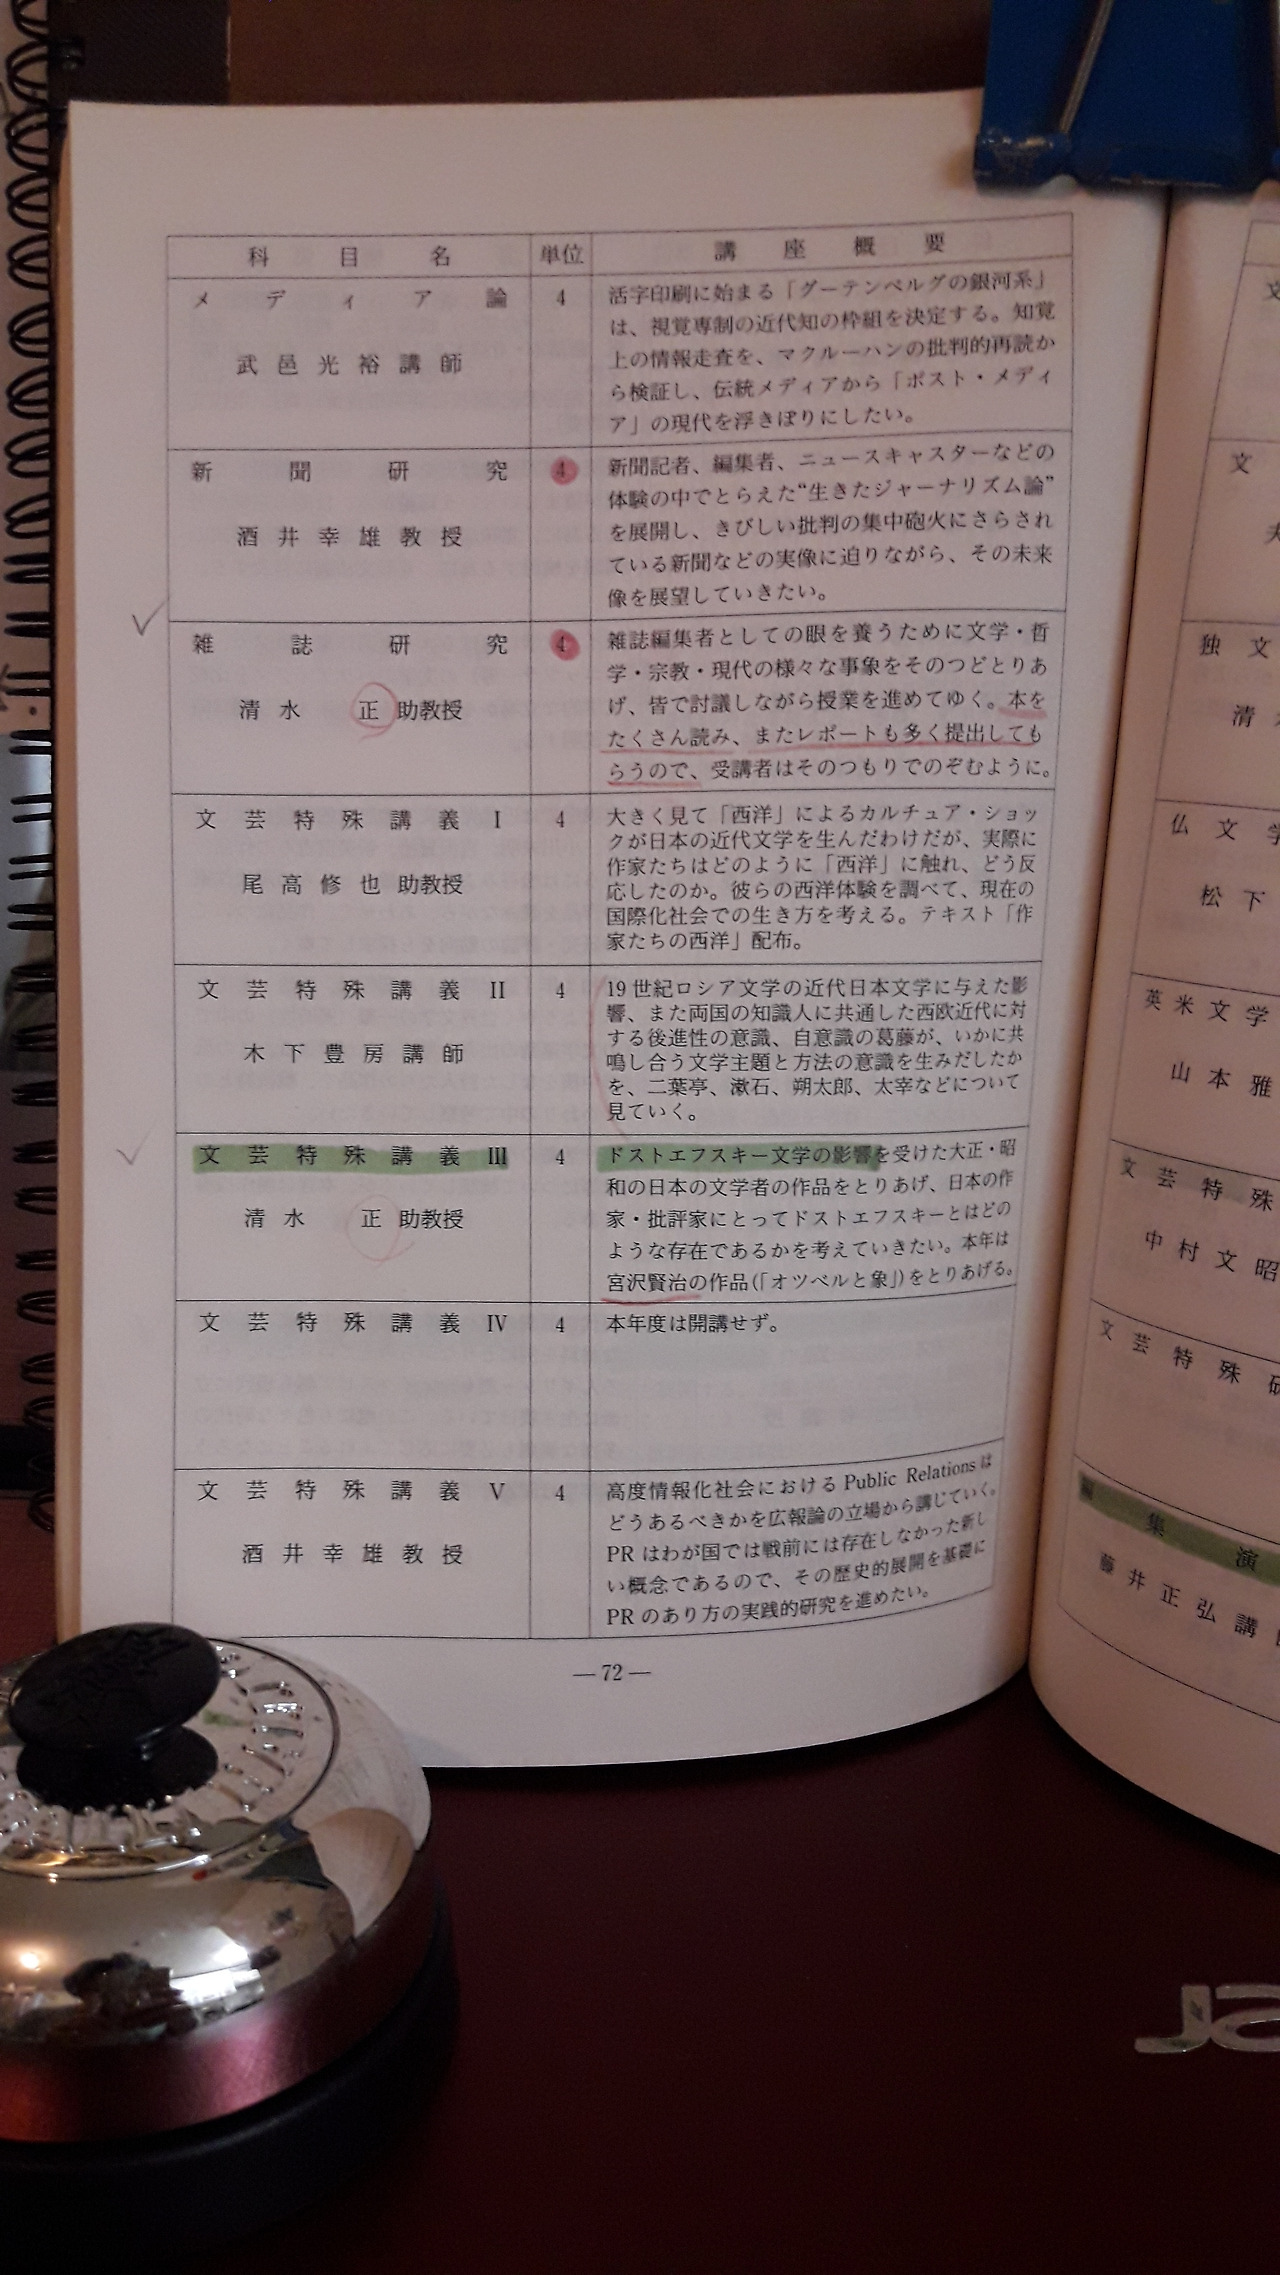 科目名 単位 講座概要
メディア論 4 活字印刷に始まる「グーテンベルグの銀河系」
は、視覚専制の近代知の枠組を決定する。知覚
武邑光裕講師 上の情報走査を、マクルーハンの批判的再読か
ら検証し、伝統メディアから「ポスト・メディ
ア」の現代を浮きぼりにしたい。
新聞研究 4 新聞記者、編集者、ニュースキャスターなどの
体験の中でとらえた“生きたジャーナリズム論”
酒井幸雄教授 を展開し、きびしい批判の集中砲火にさらされ
ている新聞などの実像に迫りながら、その未来
像を展望していきたい。
雑誌研究 4 雑誌編集者としての眼を養うために文学・哲
学・宗教・現代の様々な事象をそのつどとりあ
清水正助教授 げ、皆で討議しながら授業を進めてゆく。本を
たくさん読み、またレポートも多く提出しても
らうので、受講者はそのつもりでのぞむように。
文芸特殊講義Ⅰ 4 大きく見て「西洋」によるカルチュア・ショッ
クが日本の近代文学を生んだわけだが、実際に
作家たちはどのように「西洋」に触れ、どう反
尾高修也助教授 応したのか。彼らの西洋体験を調べて、現在の
国際化社会での生き方を考える。テキスト「作
家たちの西洋」配布。
文芸特殊講義Ⅱ 4 19世紀ロシア文学の近代日本文学に与えた影
響、また両国の知識人に共通した西欧近代に対
する後進性の意識、自意識の葛藤が、いかに共
木下豊房講師 鳴し合う文学主題と方法の意識を生みだしたか
を、二葉亭、漱石、朔太郎、太宰などについて
見ていく。
文芸特殊講義Ⅲ 4 ドストエフスキー文学の影響を受けた大正・昭
和の日本の文学者の作品をとりあげ、日本の作
清水正助教授 家・批評家にとってドストエフスキーとはどの
ような存在であるかを考えていきたい。本年は
宮沢賢治の作品(「オツベルと象」)をとりあげる。
文芸特殊講義Ⅳ 4 本年度は開講せず。
文芸特殊講義Ⅴ 4 高度情報化社会における Public Relations は
どうあるべきかを広報論の立場から講じていく。
酒井幸雄教授 PR はわが国では戦前には存在しなかった新し
い概念であるので、その歴史的展開を基礎に
PR のあり方の実践的研究を進めたい。
―72―
文
独文
清
仏文学
松下
英米文学
山本雅
文芸特殊
中村文昭
文芸特殊研
集演
藤井正弘講